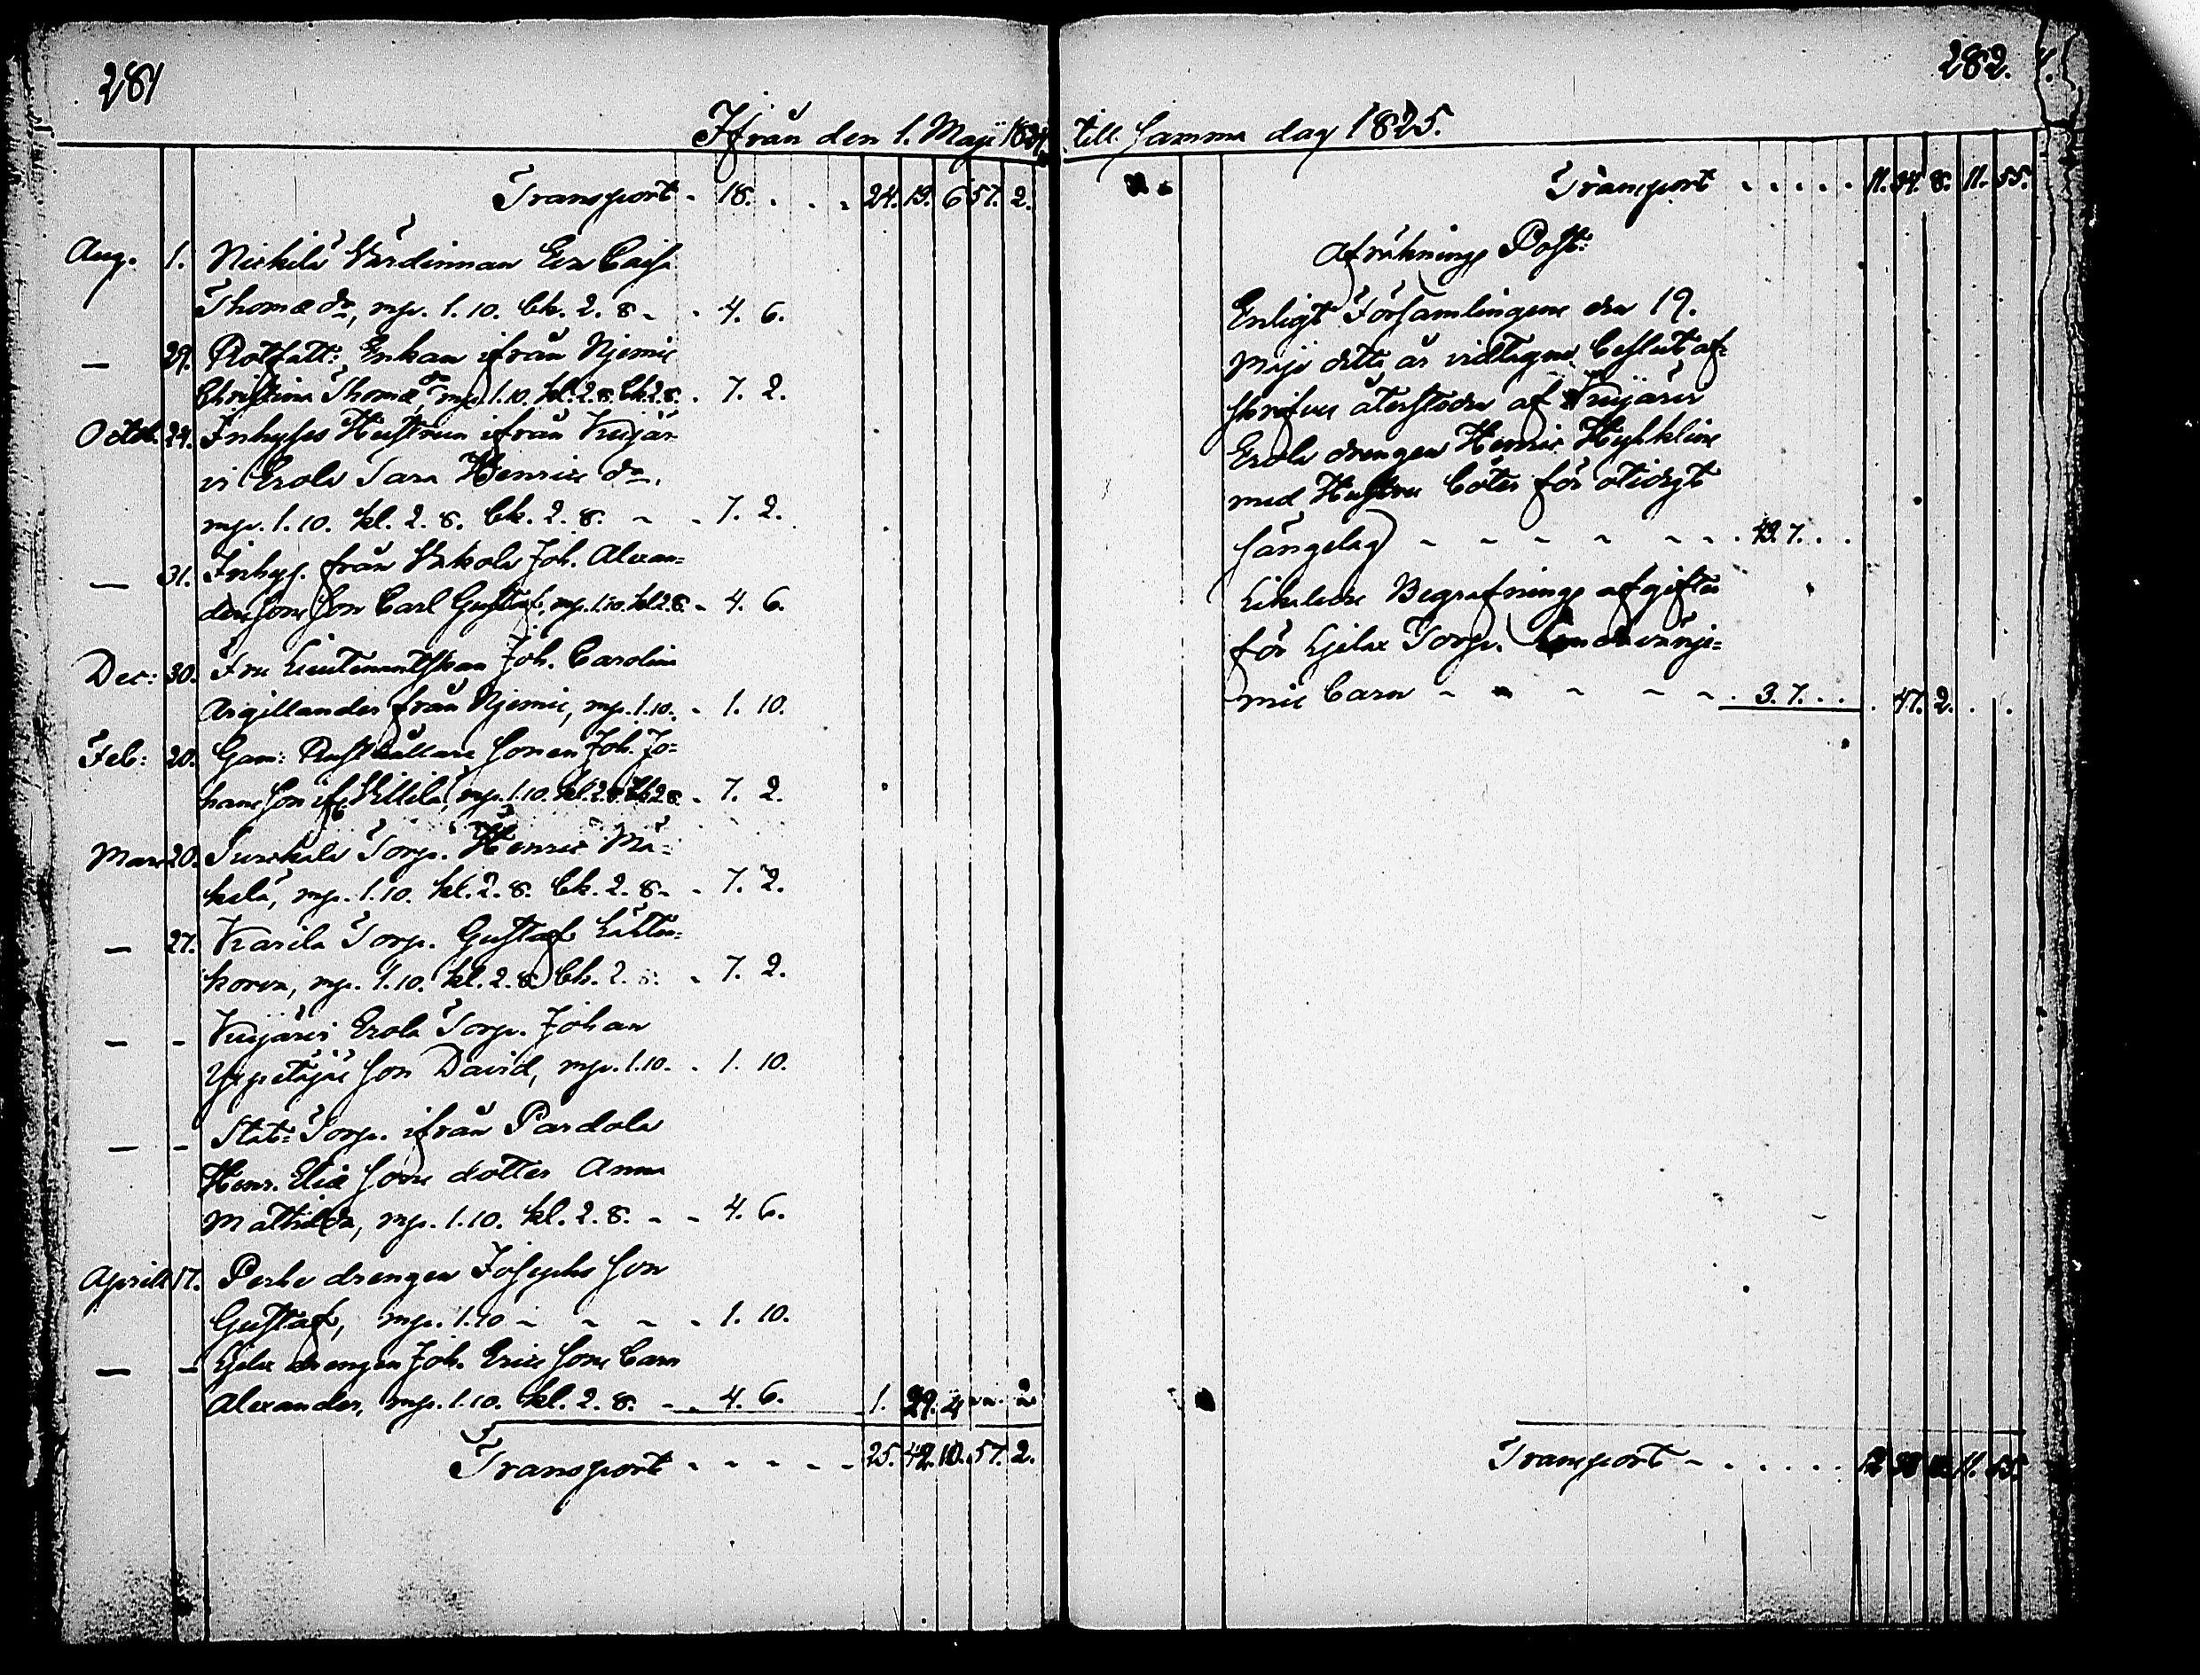 281
Ifrån den 1. Maji 1824.
Transport - 18. . . . 24. 19. 6 57. 2.
Aug. 1. Nickilä Värdinnan Eva Caisa
Thomæ dr, mp. 1. 10. bk. 2. 8 - - 4. 6.
— 29. Rotfatt: Enkan ifrån Njemis
Christina Thomæ dr, mp. 1. 10. kl. 2. 8. bk. 2. 8. . 7. 2.
Octob. 24. Inhyses Hustrun ifrån Kujär
vi Erola Sara Henrics dr.
mp. 1. 10. kl. 2. 8. bk. 2. 8. - - 7. 2.
— 31. Inhys. från Joh. Alexan=
ders sons son Carl Gustaf, mp. 1. 10. kl 2. 8 - 4. 6.
Dec: 30. Fru Lieutenantskan Joh. Carolin
Argillander från Njemis, mp. 1. 10. - 1. 10.
Feb: 20. Gam: Rusthållare sonen Joh. Jo=
hans son ifr. Villilä, mp. 1. 10. kl. 2. 8. bk 2 8. - 7. 2.
Mars 20. Torp. Henric Mä=
kelä, mp. 1. 10. kl. 2. 8. bk. 2. 8. - . 7. 2.
— 27. Karila Torp. Gustaf
korva, mp. 1. 10. kl. 2. 8. bk. 2. 8. - 7. 2.
— - Kujärvi Erola Torp. Johan
son David, mp. 1. 10. . 1. 10.
— - Stat= Torp. ifrån Pardola
Henr. Eliæ sons dotter Anna
Mathilda, mp. 1. 10. kl. 2. 8. - - 4. 6.
Aprill 17. drengen Josephs son
Gustaf, mp. 1. 10 - - - - 1. 10.
— - drengen Joh. Erics sons barn
Alexander, mp. 1. 10. kl. 2. 8. - . 4. 6. 1. 29. 4 2
Transport - - - - - 25. 42. 10. 57. 2.
282.
till samma dag 1825.
Transport . . . . . 11. 34. 8. 11. 55.
Afräknings Post:
Enligt Församlingens den 19.
Maji detta år vidtagne beslut af=
skrifves återstoden af Kujärvi
Erola drengen Henric
med Hustru böter för otidigt
sängelag - - - - - - . 43. 7. . .
Likaledes Begrafnings afgiften
för Torp.
mis barn - - - - - . 3. 7. . . . 47. 2. . .
Transport - . . . . . 12 11.